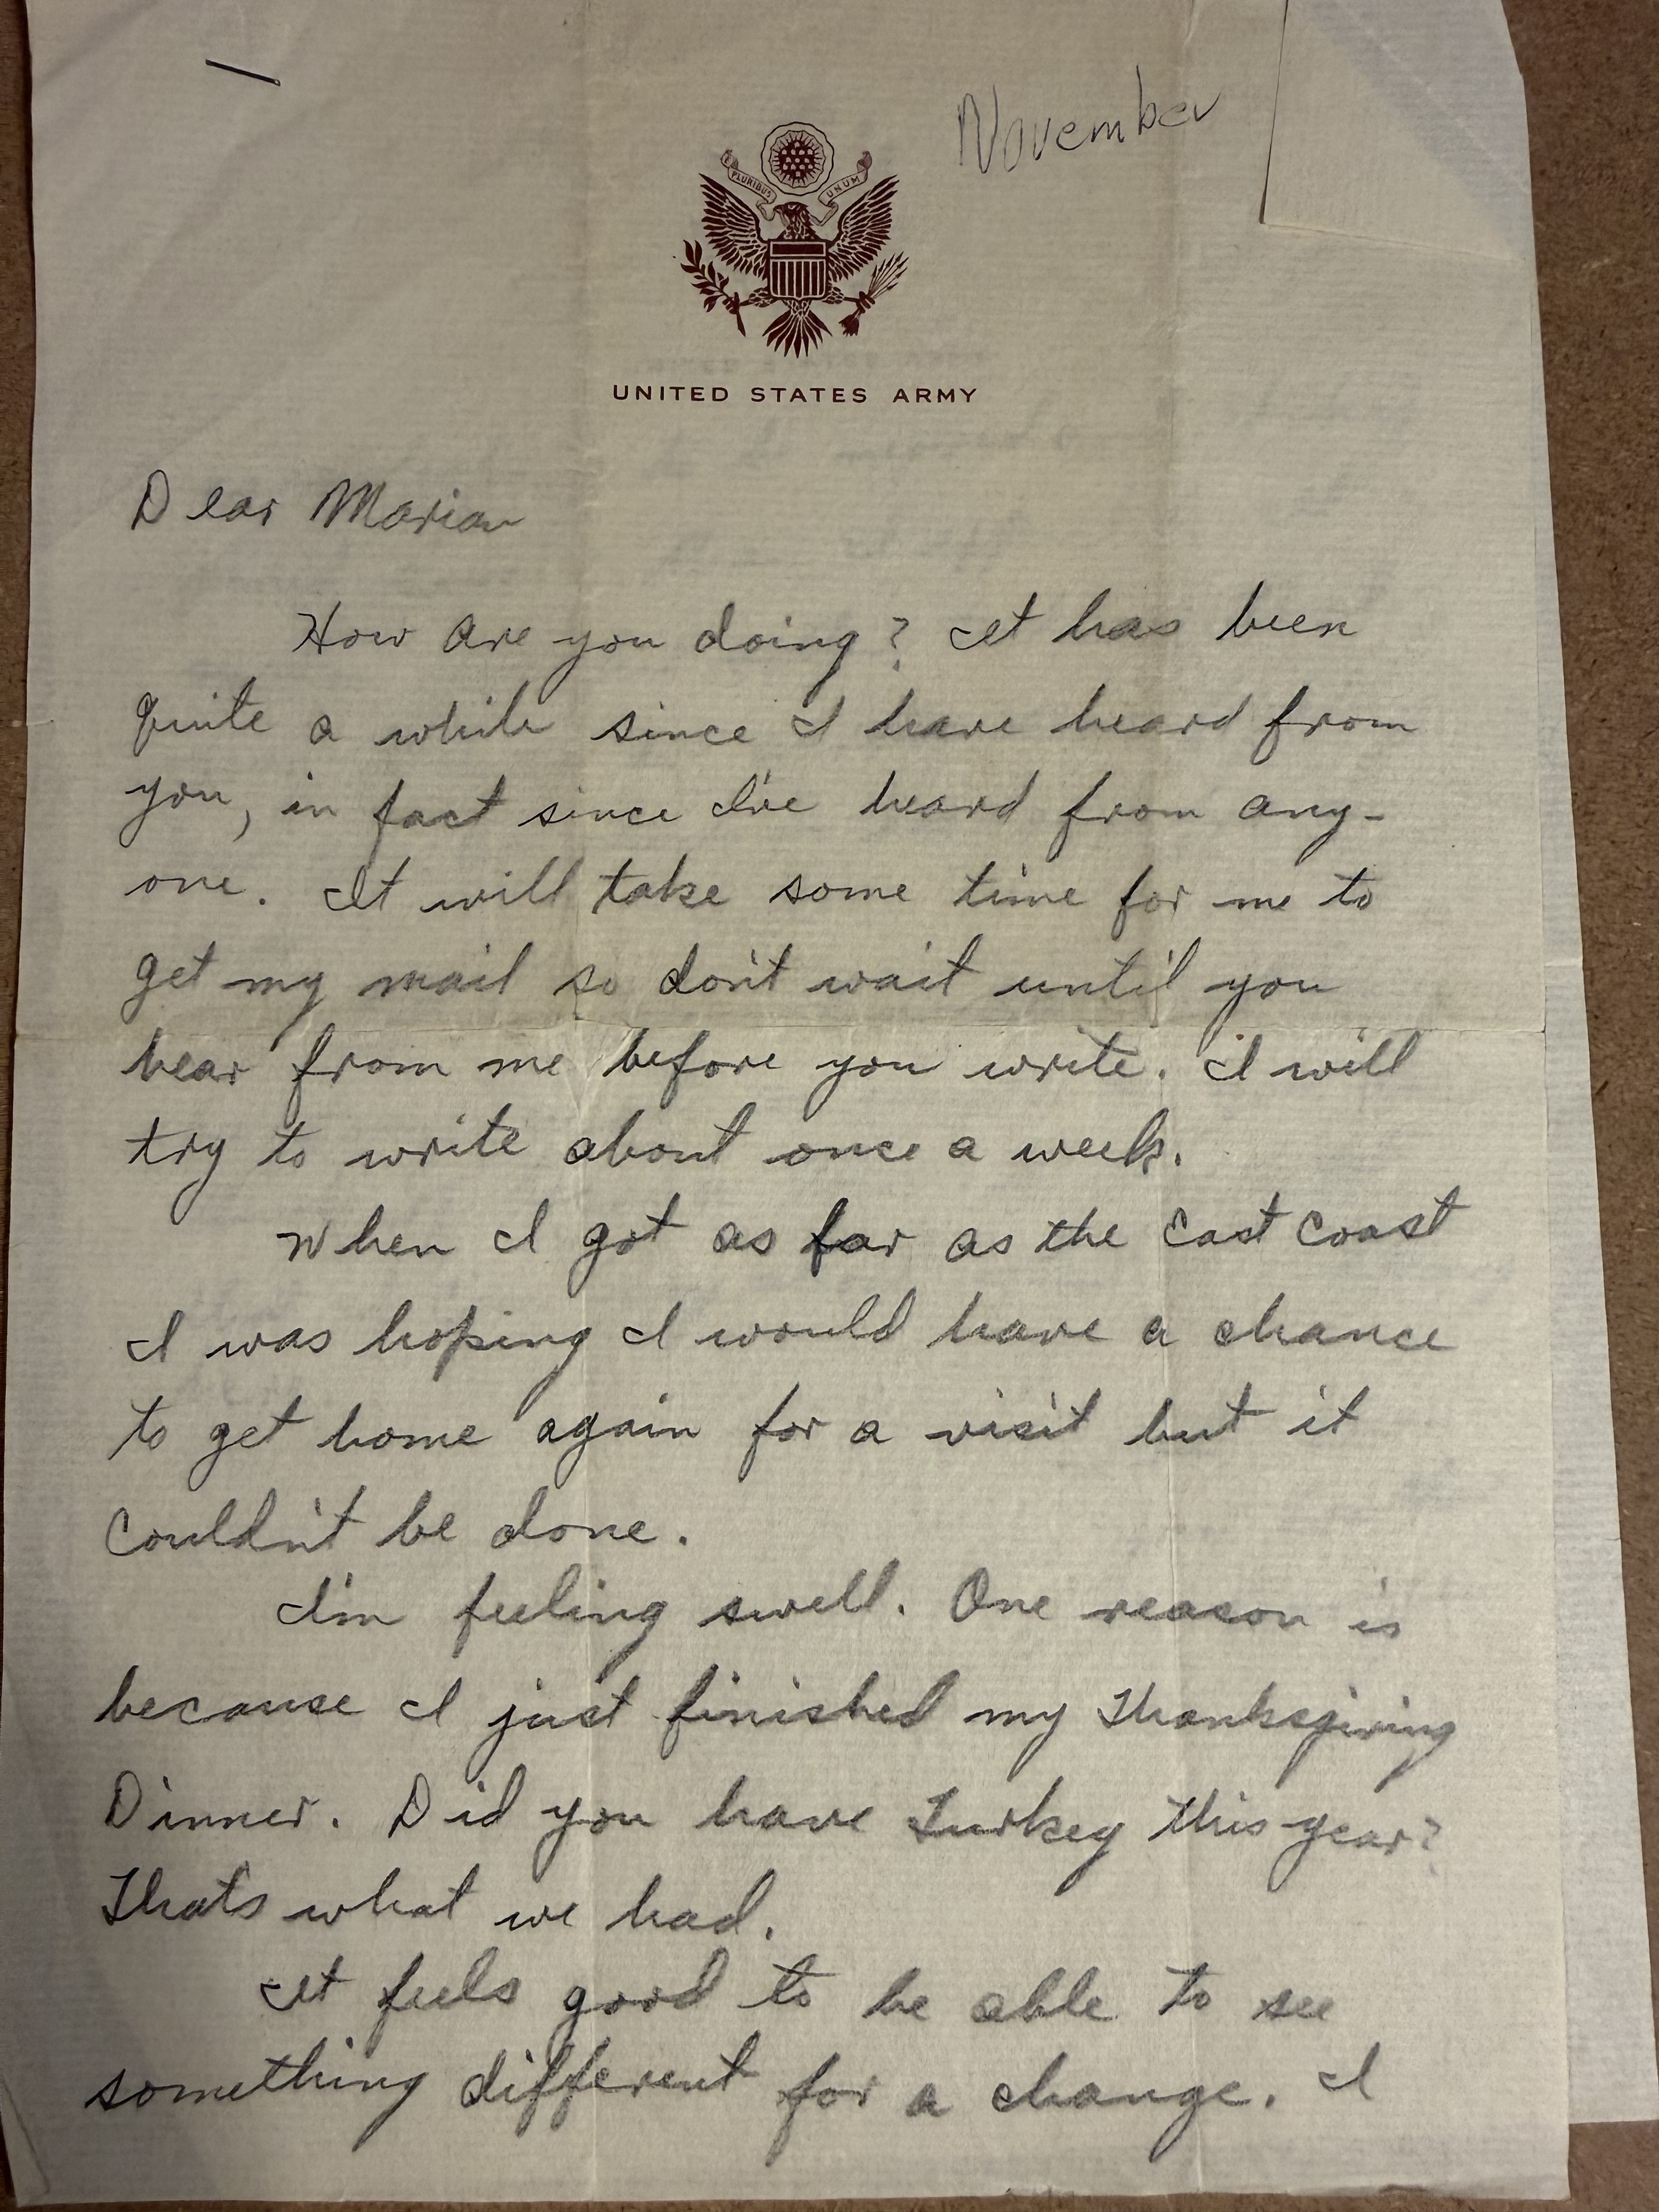 November
PLURIBUS UNUM
UNITED STATES ARMY
Dear Marian
How are you doing? It has been
quite a while since I have heard from
you, in fact since I've heard from any-
one. It will take some time for me to
get my mail so don't wait until you
hear from me before you write. I will
try to write about once a week.
When I got as far as the East Coast
I was hoping I would have a chance
to get home again for a visit but it
couldn't be done.
I'm feeling swell. One reason is
because I just finished my Thanksgiving
Dinner. Did you have Turkey this year?
Thats what we had.
It feels good to be able to see
something different for a change. I